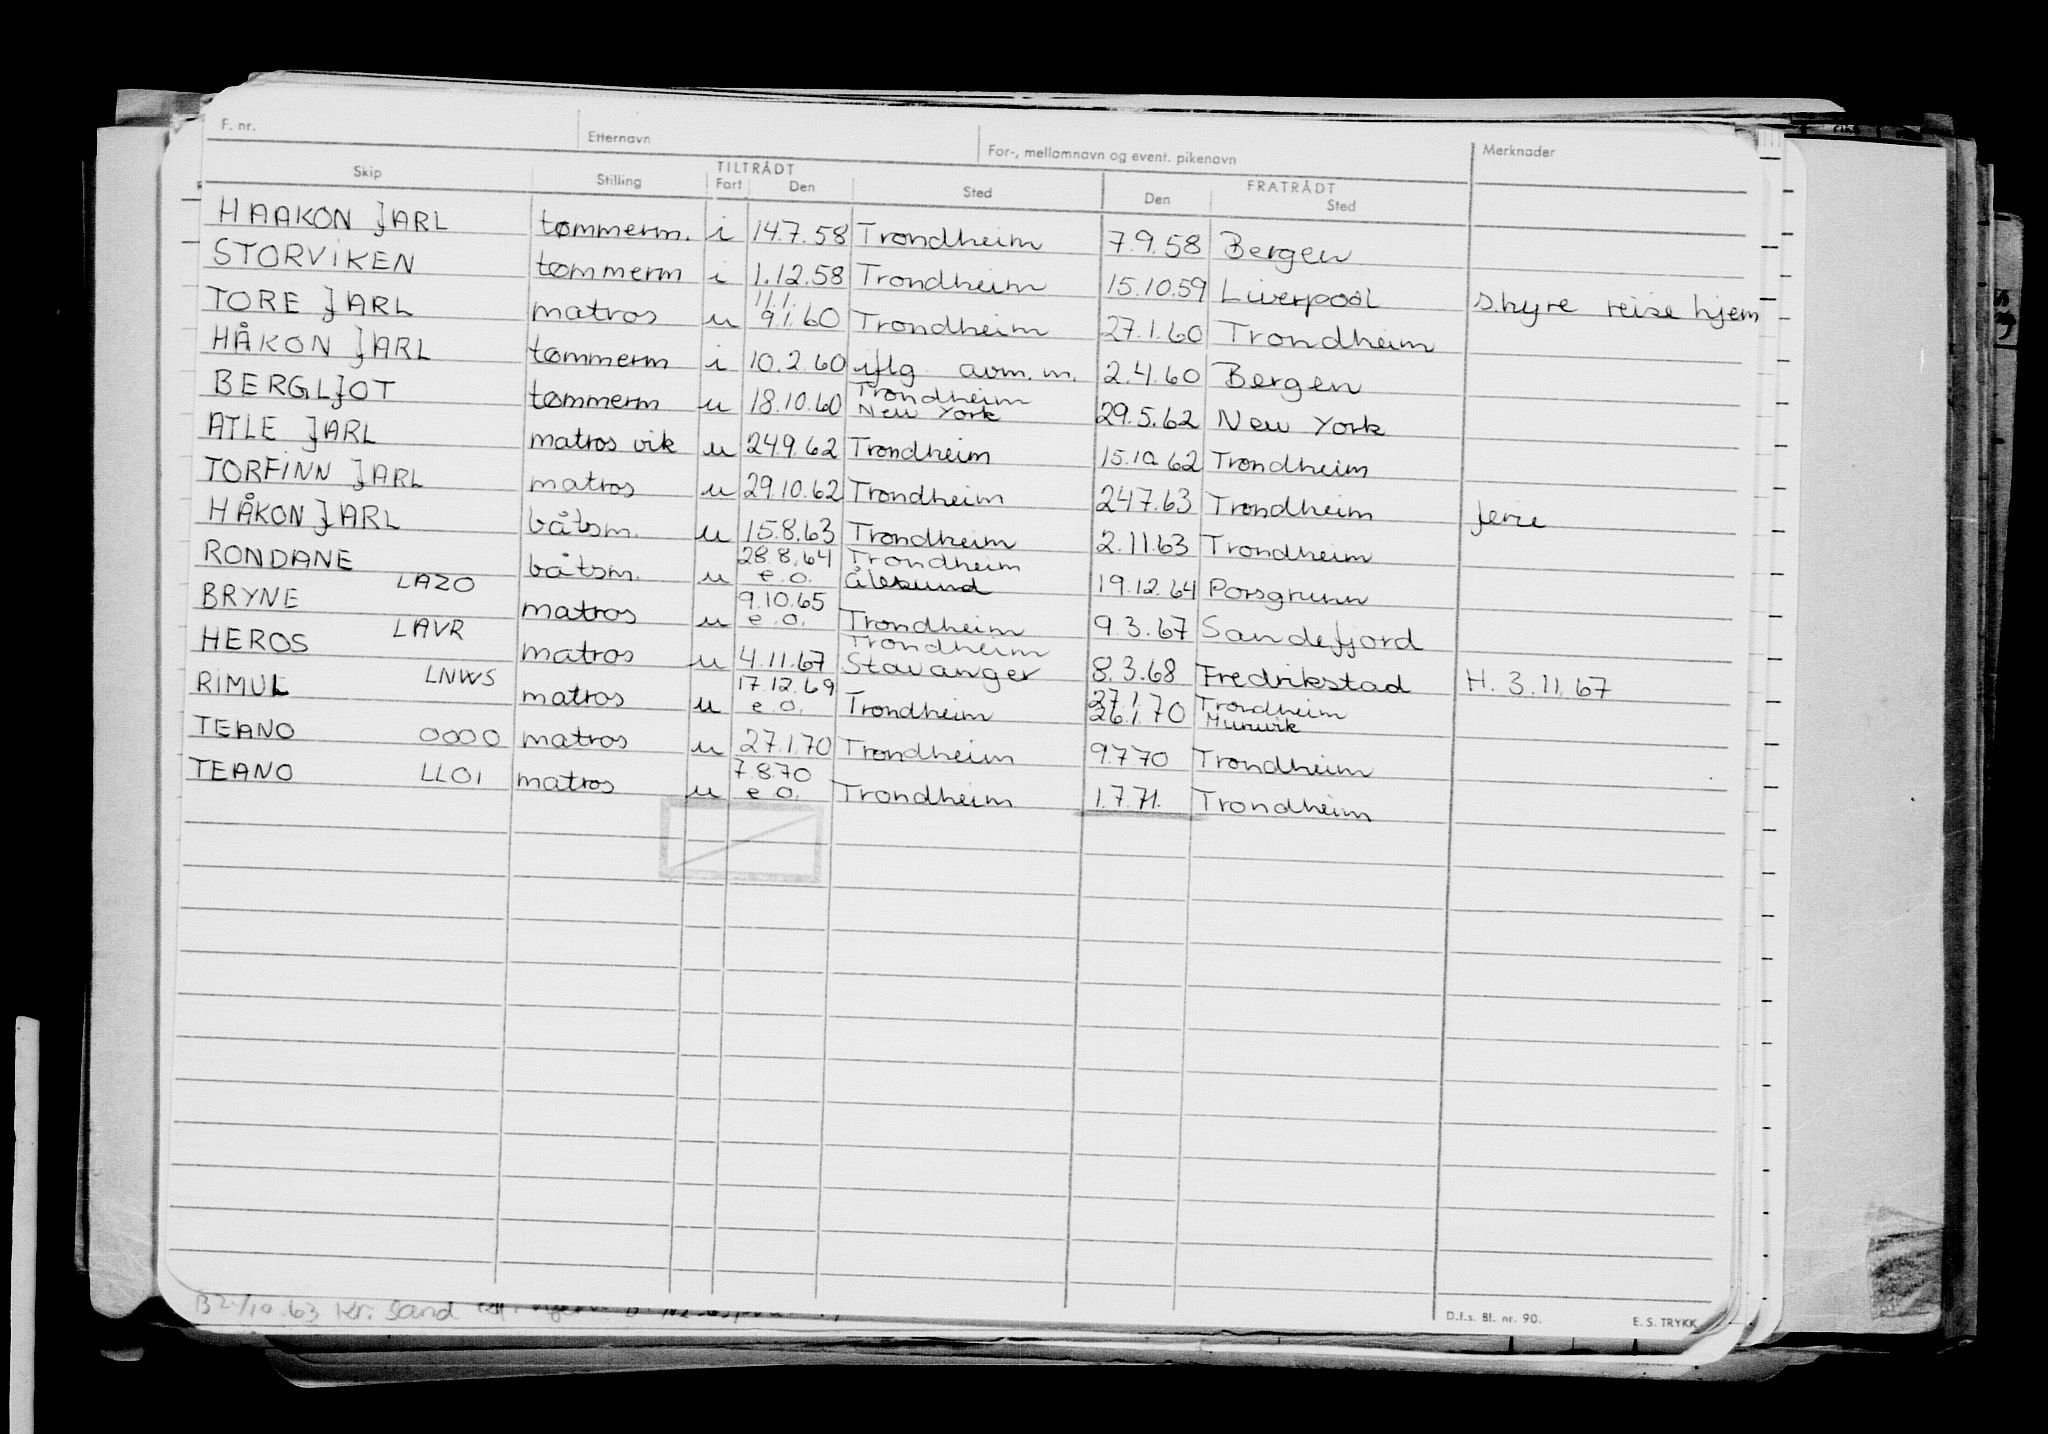 F. nr. Etternavn For-, mellomnavn og event. pikenavn Merknader
Skip Stilling TILTRÅDT Fart Den Sted FRATRÅDT Den Sted
HAAKON JARL tømmerm. i 14.7.58 Trondheim 7.9.58 Bergen
STORVIKEN tømmerm i 1.12.58 Trondheim 15.10.59 Liverpool s.hyre reise hjem
11.1.
TORE JARL matros u 9.1.60 Trondheim 27.1.60 Trondheim
HÅKON JARL tømmerm i 10.2.60 iflg. avm. m. 2.4.60 Bergen
Trondheim
BERGLJOT tømmerm u 18.10.60 New York 29.5.62 New York
ATLE JARL matros vik u 24.9.62 Trondheim 15.10.62 Trondheim
TORFINN JARL matros u 29.10.62 Trondheim 24.7.63 Trondheim ferie
HÅKON JARL båtsm. u 15.8.63 Trondheim 2.11.63 Trondheim
28.8.64 Trondheim
RONDANE båtsm. u e.o. Ålesund 19.12.64 Porsgrunn
LAZO 9.10.65
BRYNE matros u e.o. Trondheim 9.3.67 Sandefjord
LAVR Trondheim
HEROS matros u 4.11.67 Stavanger 8.3.68 Fredrikstad H. 3.11.67
LNWS 17.12.69 27.1 Trondheim
RIMUL matros u e.o. Trondheim 26.1.70 Muruvik
TEANO OOOO matros u 27.1.70 Trondheim 9.7.70 Trondheim
7.8.70
TEANO LLOI matros u e.o. Trondheim 1.7.71. Trondheim
10.63 Kr. Sand
D.f.s. Bl. nr. 90. E. S. TRYKK